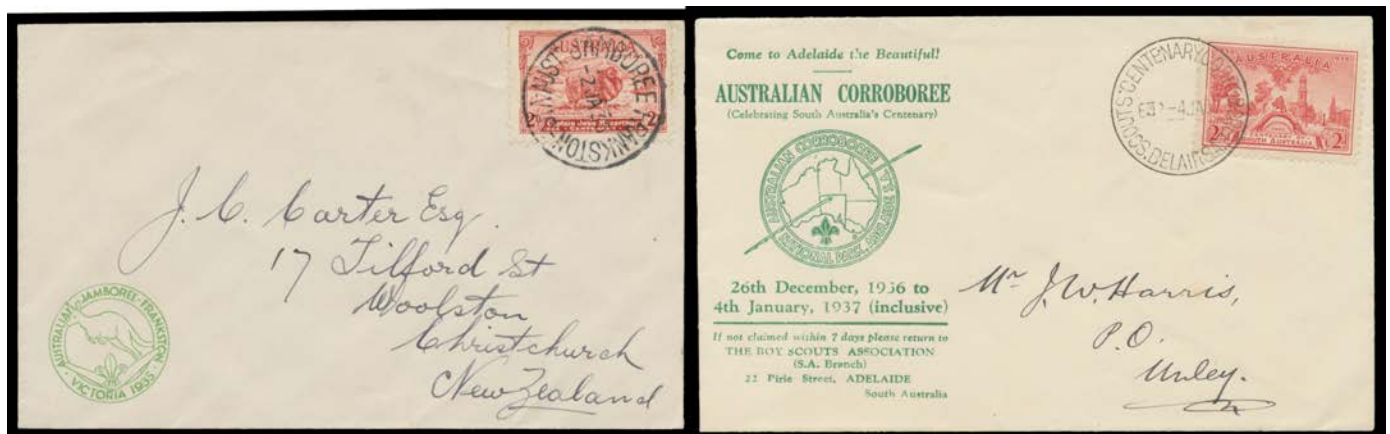 AUSTRALIA
JAMBOREE FRANKSTON
-2 JA 35
2
J. C. Carter Esq.
17 Tilford St
Woolston
Christchurch
New Zealand
AUSTRALIAN JAMBOREE · FRANKSTON ·
VICTORIA 1935
Come to Adelaide the Beautiful!
AUSTRALIAN CORROBOREE
(Celebrating South Australia's Centenary)
AUSTRALIAN CORROBOREE
NATIONAL PARK, ADELAIDE S.A.
26th December, 1936 to
4th January, 1937 (inclusive)
If not claimed within 7 days please return to
THE BOY SCOUTS ASSOCIATION
(S.A. Branch)
22 Pirie Street, ADELAIDE
South Australia
SCOUTS' CENTENARY
-4JA
AUSTRALIA
2d
CENTENARY OF
SOUTH AUSTRALIA
2d
Mr J. W. Harris,
P.O.
Unley.